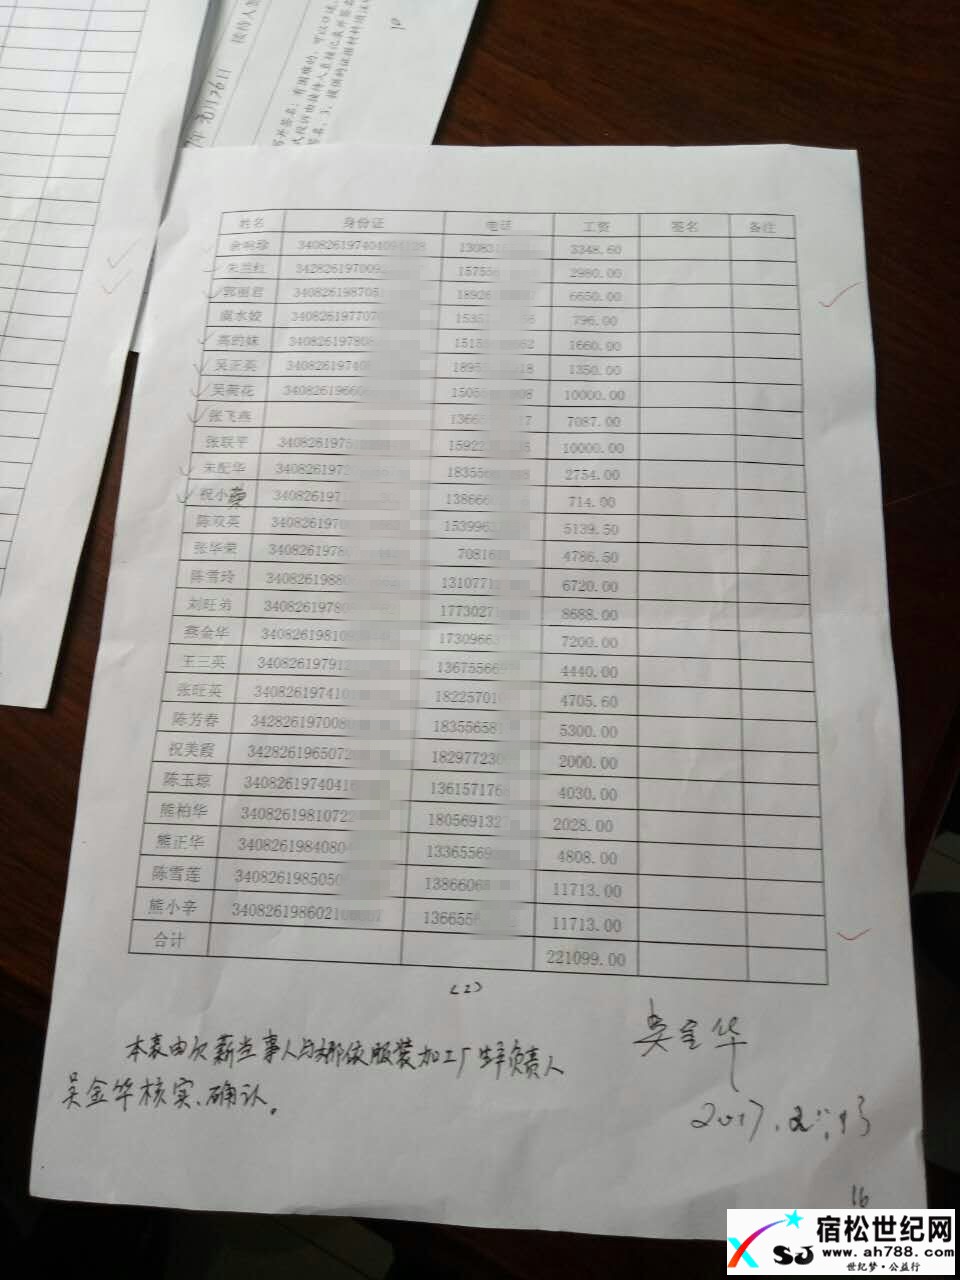 接待人签
姓名 身份证 电话 工资 签名 备注
余响珍 3408261974040 13083 3348.60
朱兰红 34282619700 15755 2980.00
郭丽君 340826198705 1892 6650.00
虞水姣 34082619770 1535 796.00
高的妹 3408261978 1515 1660.00
吴正英 340826197 1895 1350.00
吴荷花 340826196 1505 10000.00
张飞燕 1366 7087.00
张联平 34082619751 1592 10000.00
朱配华 3408261972 18355 2754.00
祝小 340826197 13866 714.00
陈双英 340826197 15399 5139.50
张华荣 34082619780 70816 4786.50
陈雪玲 34082619880 131077 6720.00
刘旺弟 3408261978 1773027 8688.00
燕金华 3408261981 1730966 7200.00
王三英 34082619791 1367556 4440.00
张旺英 34082619741 1822570 4705.60
陈芳春 342826197008 18355658 5300.00
祝美霞 3428261965072 182977230 2000.00
陈玉琼 3408261974041 136157176 4030.00
熊柏华 3408261981072 180569132 2028.00
熊正华 340826198408 13365569 4808.00
陈雪莲 340826198505 1386606 11713.00
熊小辛 34082619860210 136655 11713.00
合计 221099.00
(2)
本表由欠薪当事人与娜依服装加工厂生产负责人
吴金华核实、确认。
吴金华
2017.
16
宿松世纪网
XSJ www.ah788.com
世纪梦·公益行